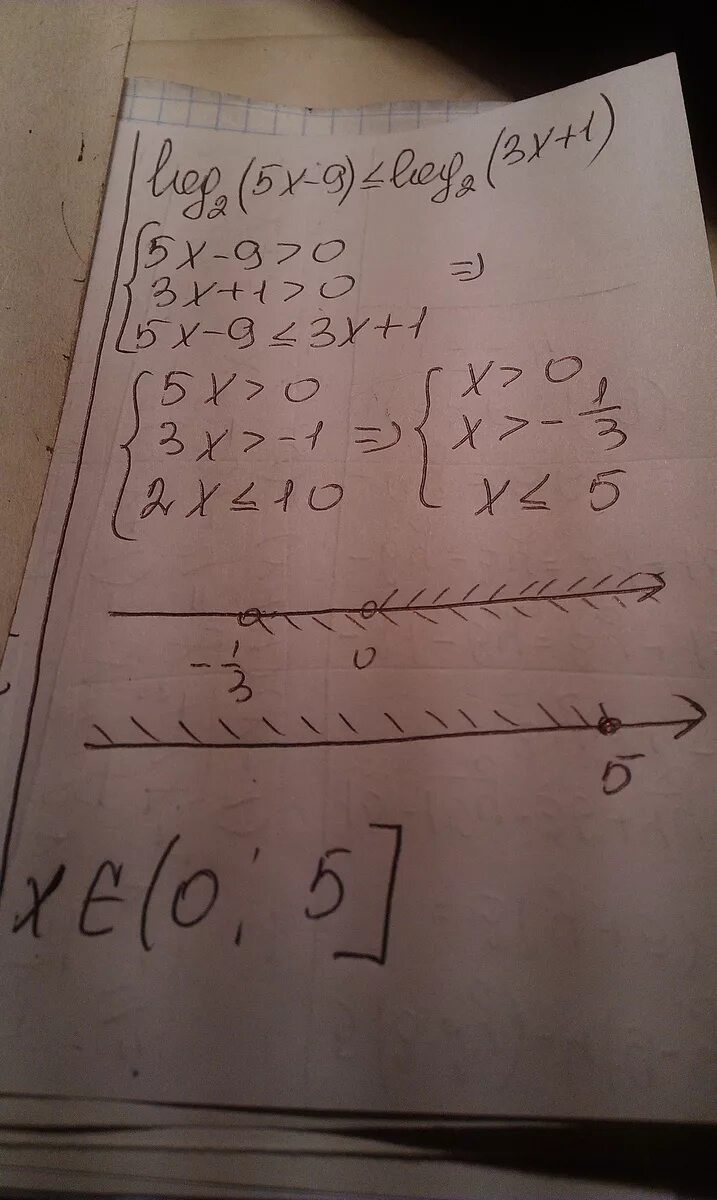 log₂(5x-9)≤log₂(3x+1)
{5x-9>0
3x+1>0 ⇒
5x-9≤3x+1
{5x>0
3x>-1 ⇒
2x≤10
{x>0
x>-1/3
x≤5
-1/3 0
5
x∈(0; 5]